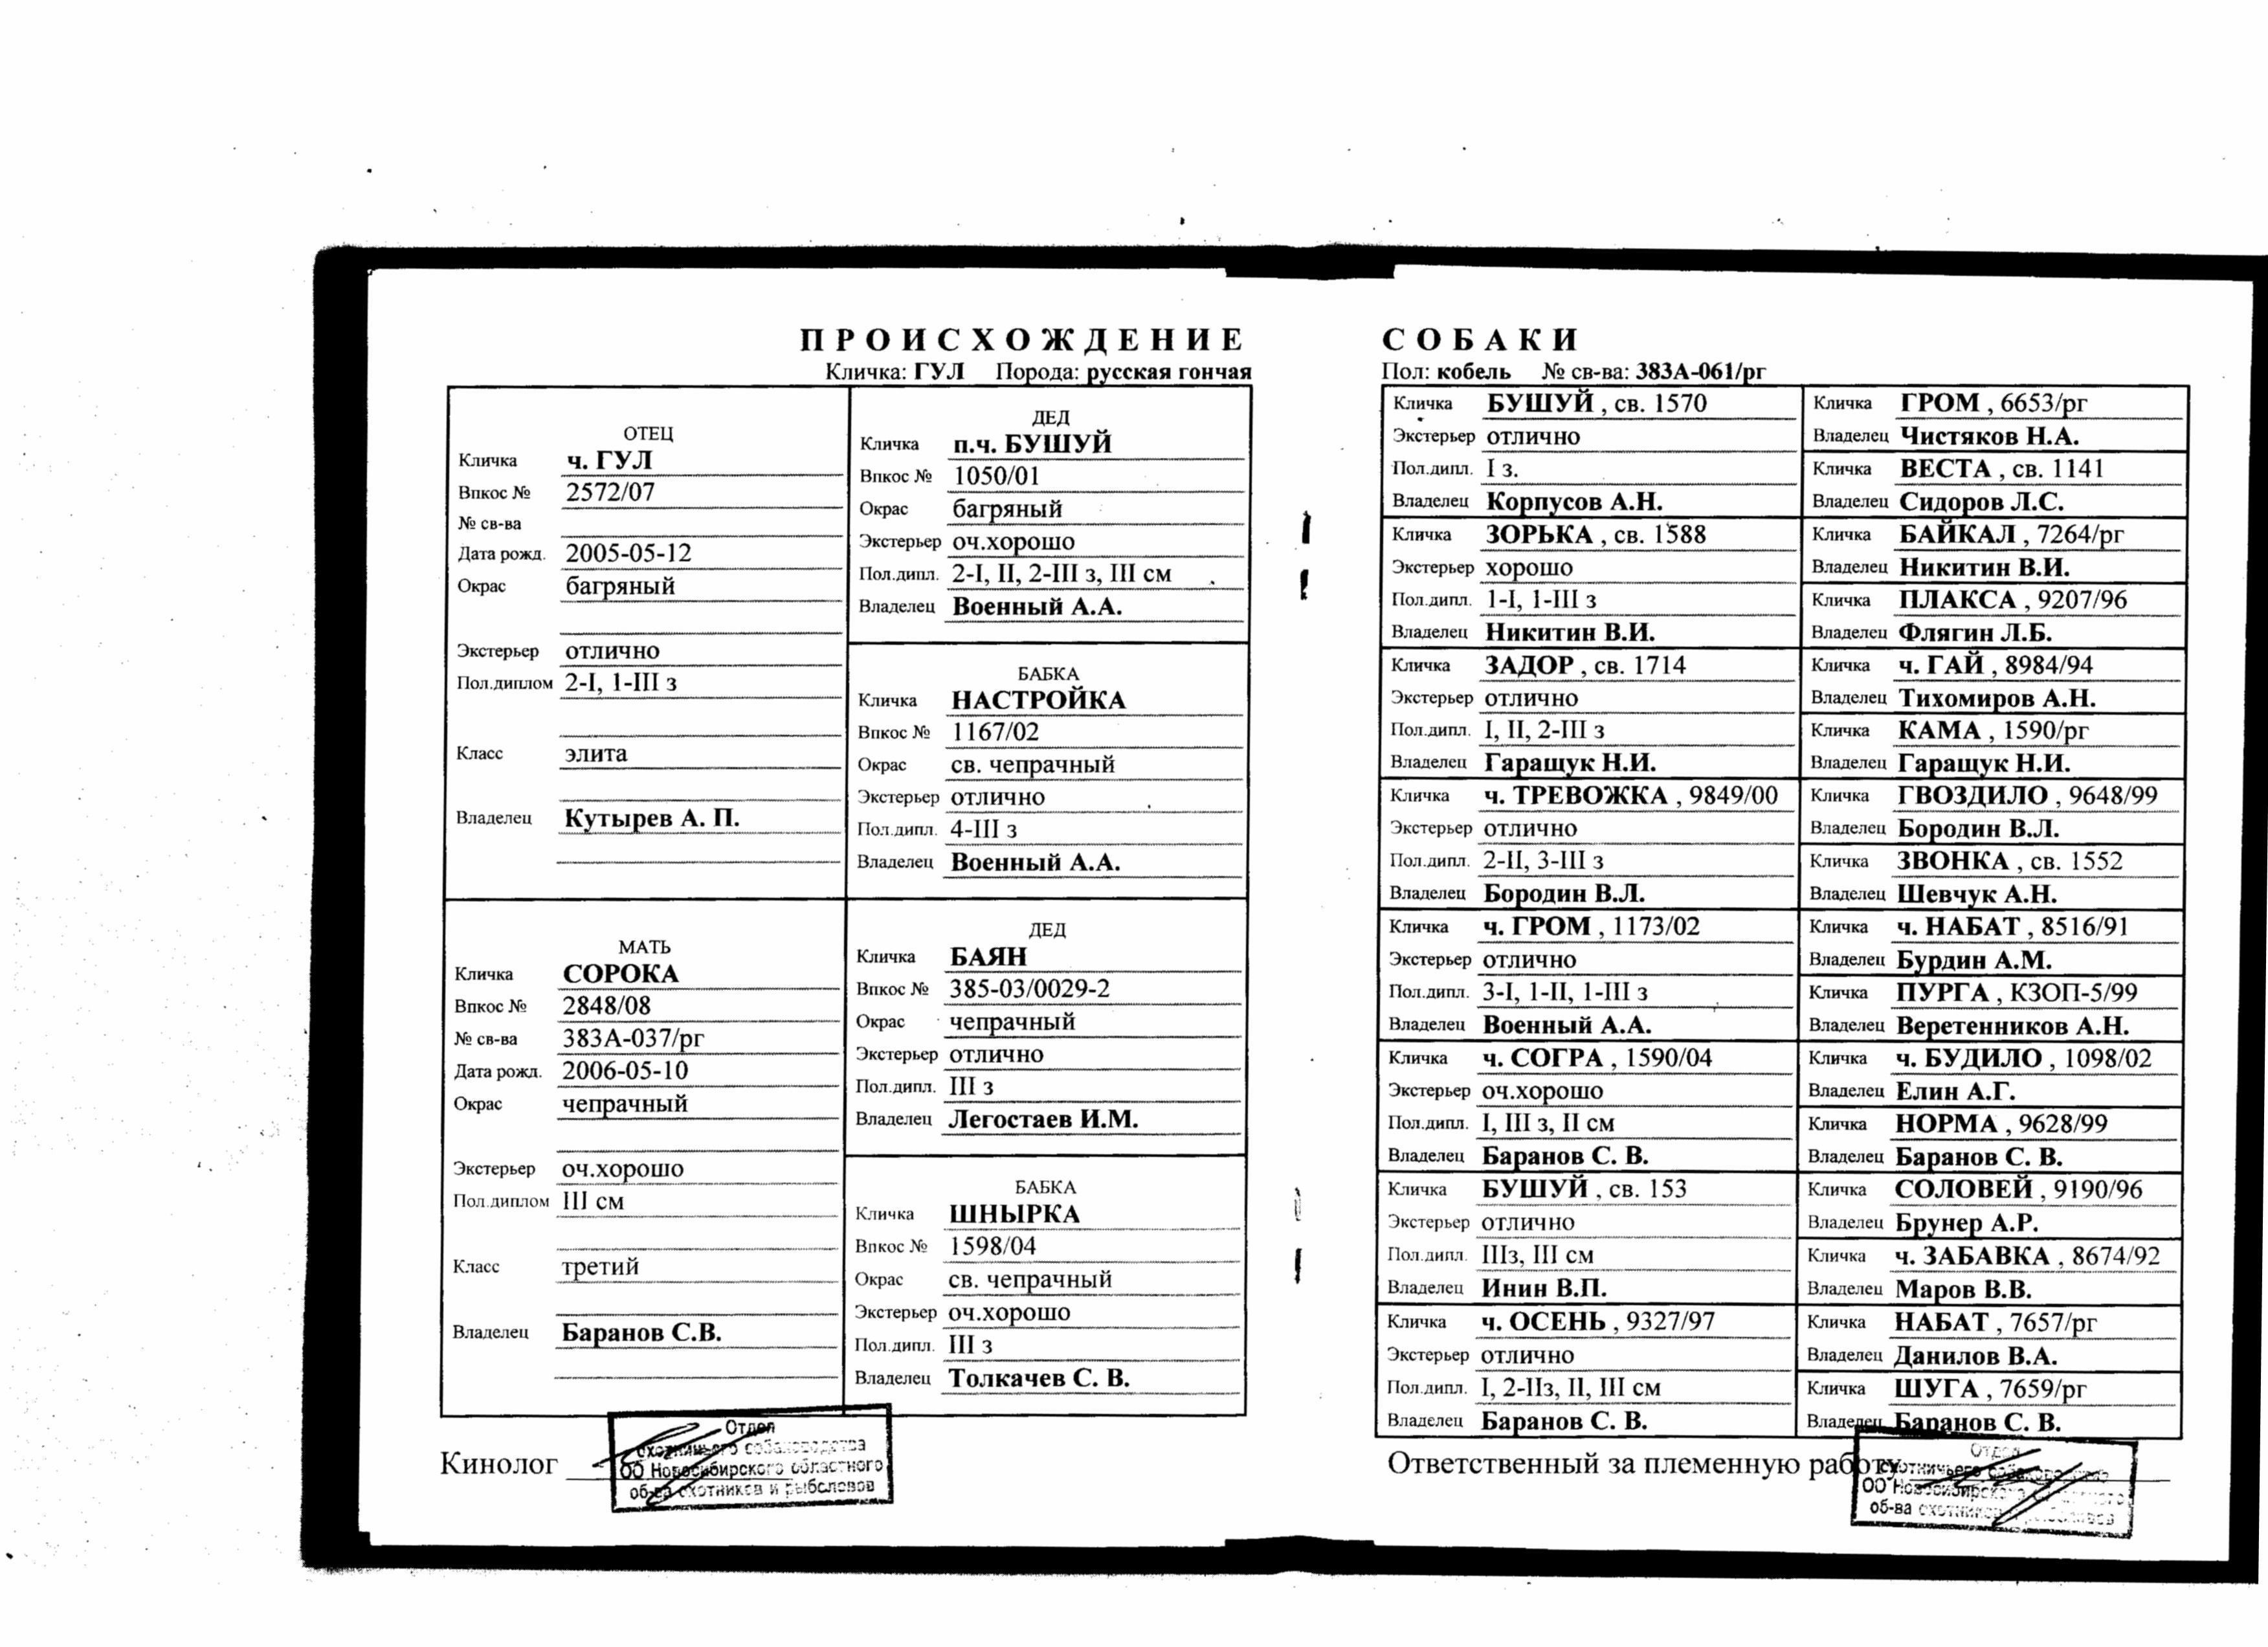 ПРОИСХОЖДЕНИЕ СОБАКИ
Кличка: ГУЛ Порода: русская гончая
Пол: кобель № св-ва: 383А-061/рг
ОТЕЦ
Кличка ч. ГУЛ
Впкос № 2572/07
№ св-ва
Дата рожд. 2005-05-12
Окрас багряный
Экстерьер отлично
Пол.диплом 2-I, 1-III з
Класс элита
Владелец Кутырев А. П.
МАТЬ
Кличка СОРОКА
Впкос № 2848/08
№ св-ва 383А-037/рг
Дата рожд. 2006-05-10
Окрас чепрачный
Экстерьер оч.хорошо
Пол.диплом III см
Класс третий
Владелец Баранов С.В.
ДЕД
Кличка п.ч. БУШУЙ
Впкос № 1050/01
Окрас багряный
Экстерьер оч.хорошо
Пол.дипл. 2-I, II, 2-III з, III см
Владелец Военный А.А.
БАБКА
Кличка НАСТРОЙКА
Впкос № 1167/02
Окрас св. чепрачный
Экстерьер отлично
Пол.дипл. 4-III з
Владелец Военный А.А.
ДЕД
Кличка БАЯН
Впкос № 385-03/0029-2
Окрас чепрачный
Экстерьер отлично
Пол.дипл. III з
Владелец Легостаев И.М.
БАБКА
Кличка ШНЫРКА
Впкос № 1598/04
Окрас св. чепрачный
Экстерьер оч.хорошо
Пол.дипл. III з
Владелец Толкачев С. В.
Кличка БУШУЙ , св. 1570
Экстерьер отлично
Пол.дипл. I з.
Владелец Корпусов А.Н.
Кличка ЗОРЬКА , св. 1588
Экстерьер хорошо
Пол.дипл. 1-I, 1-III з
Владелец Никитин В.И.
Кличка ЗАДОР , св. 1714
Экстерьер отлично
Пол.дипл. I, II, 2-III з
Владелец Гаращук Н.И.
Кличка ч. ТРЕВОЖКА , 9849/00
Экстерьер отлично
Пол.дипл. 2-II, 3-III з
Владелец Бородин В.Л.
Кличка ч. ГРОМ , 1173/02
Экстерьер отлично
Пол.дипл. 3-I, 1-II, 1-III з
Владелец Военный А.А.
Кличка ч. СОГРА , 1590/04
Экстерьер оч.хорошо
Пол.дипл. I, III з, II см
Владелец Баранов С. В.
Кличка БУШУЙ , св. 153
Экстерьер отлично
Пол.дипл. IIIз, III см
Владелец Инин В.П.
Кличка ч. ОСЕНЬ , 9327/97
Экстерьер отлично
Пол.дипл. I, 2-IIз, II, III см
Владелец Баранов С. В.
Кличка ГРОМ , 6653/рг
Владелец Чистяков Н.А.
Кличка ВЕСТА , св. 1141
Владелец Сидоров Л.С.
Кличка БАЙКАЛ , 7264/рг
Владелец Никитин В.И.
Кличка ПЛАКСА , 9207/96
Владелец Флягин Л.Б.
Кличка ч. ГАЙ , 8984/94
Владелец Тихомиров А.Н.
Кличка КАМА , 1590/рг
Владелец Гаращук Н.И.
Кличка ГВОЗДИЛО , 9648/99
Владелец Бородин В.Л.
Кличка ЗВОНКА , св. 1552
Владелец Шевчук А.Н.
Кличка ч. НАБАТ , 8516/91
Владелец Бурдин А.М.
Кличка ПУРГА , КЗОП-5/99
Владелец Веретенников А.Н.
Кличка ч. БУДИЛО , 1098/02
Владелец Елин А.Г.
Кличка НОРМА , 9628/99
Владелец Баранов С. В.
Кличка СОЛОВЕЙ , 9190/96
Владелец Брунер А.Р.
Кличка ч. ЗАБАВКА , 8674/92
Владелец Маров В.В.
Кличка НАБАТ , 7657/рг
Владелец Данилов В.А.
Кличка ШУГА , 7659/рг
Владелец Баранов С. В.
Кинолог
Отдел
охотничьего собаководства
ОО Новосибирского областного
об-ва охотников и рыболовов
Ответственный за племенную работу
Отдел
охотничьего собаководства
ОО Новосибирского областного
об-ва охотников и рыболовов